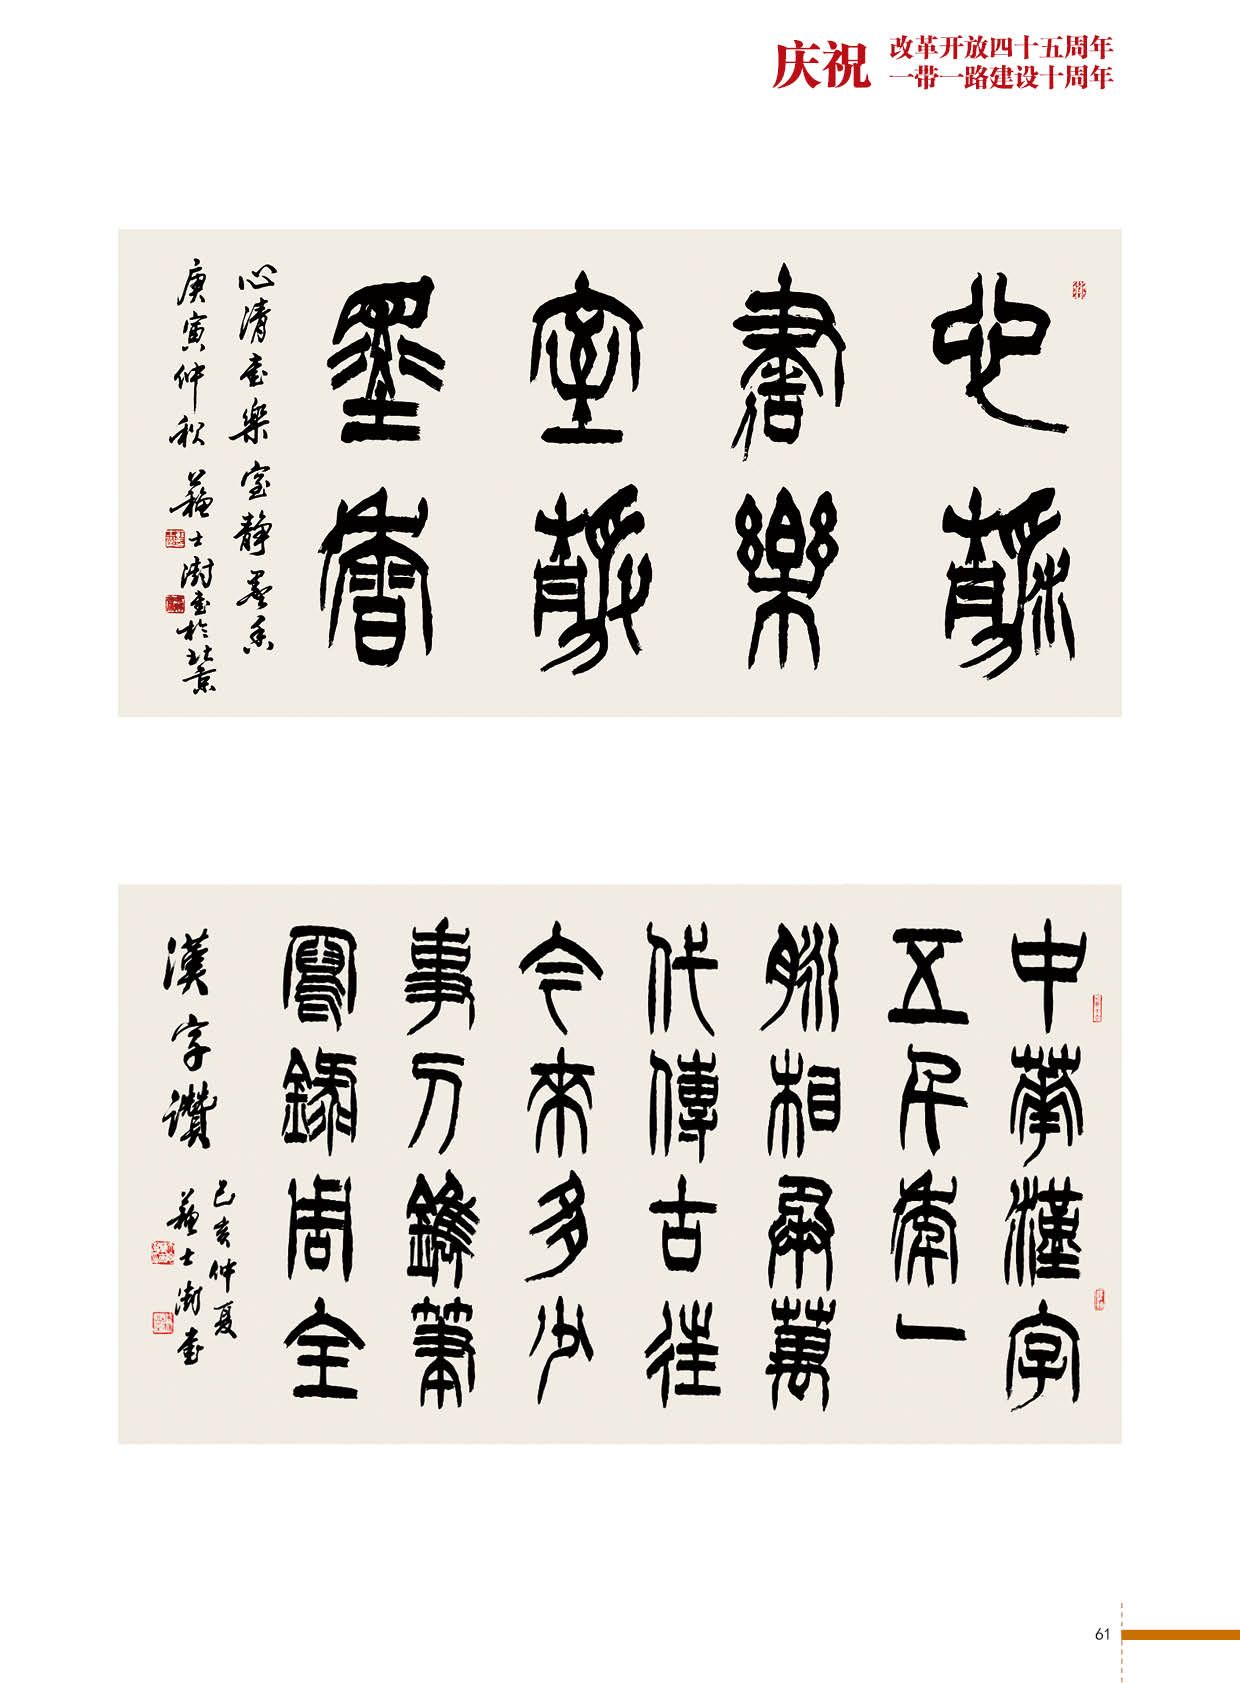 庆祝
改革开放四十五周年
一带一路建设十周年
心清
書樂
室靜
墨香
心清書樂室靜墨香
庚寅仲秋蘇士澍書於北京
中華漢字
五千年一
脈相承萬
代傳古往
今來多少
事刀鐫筆
寫錄周全
漢字讚
己亥仲夏
蘇士澍書
61